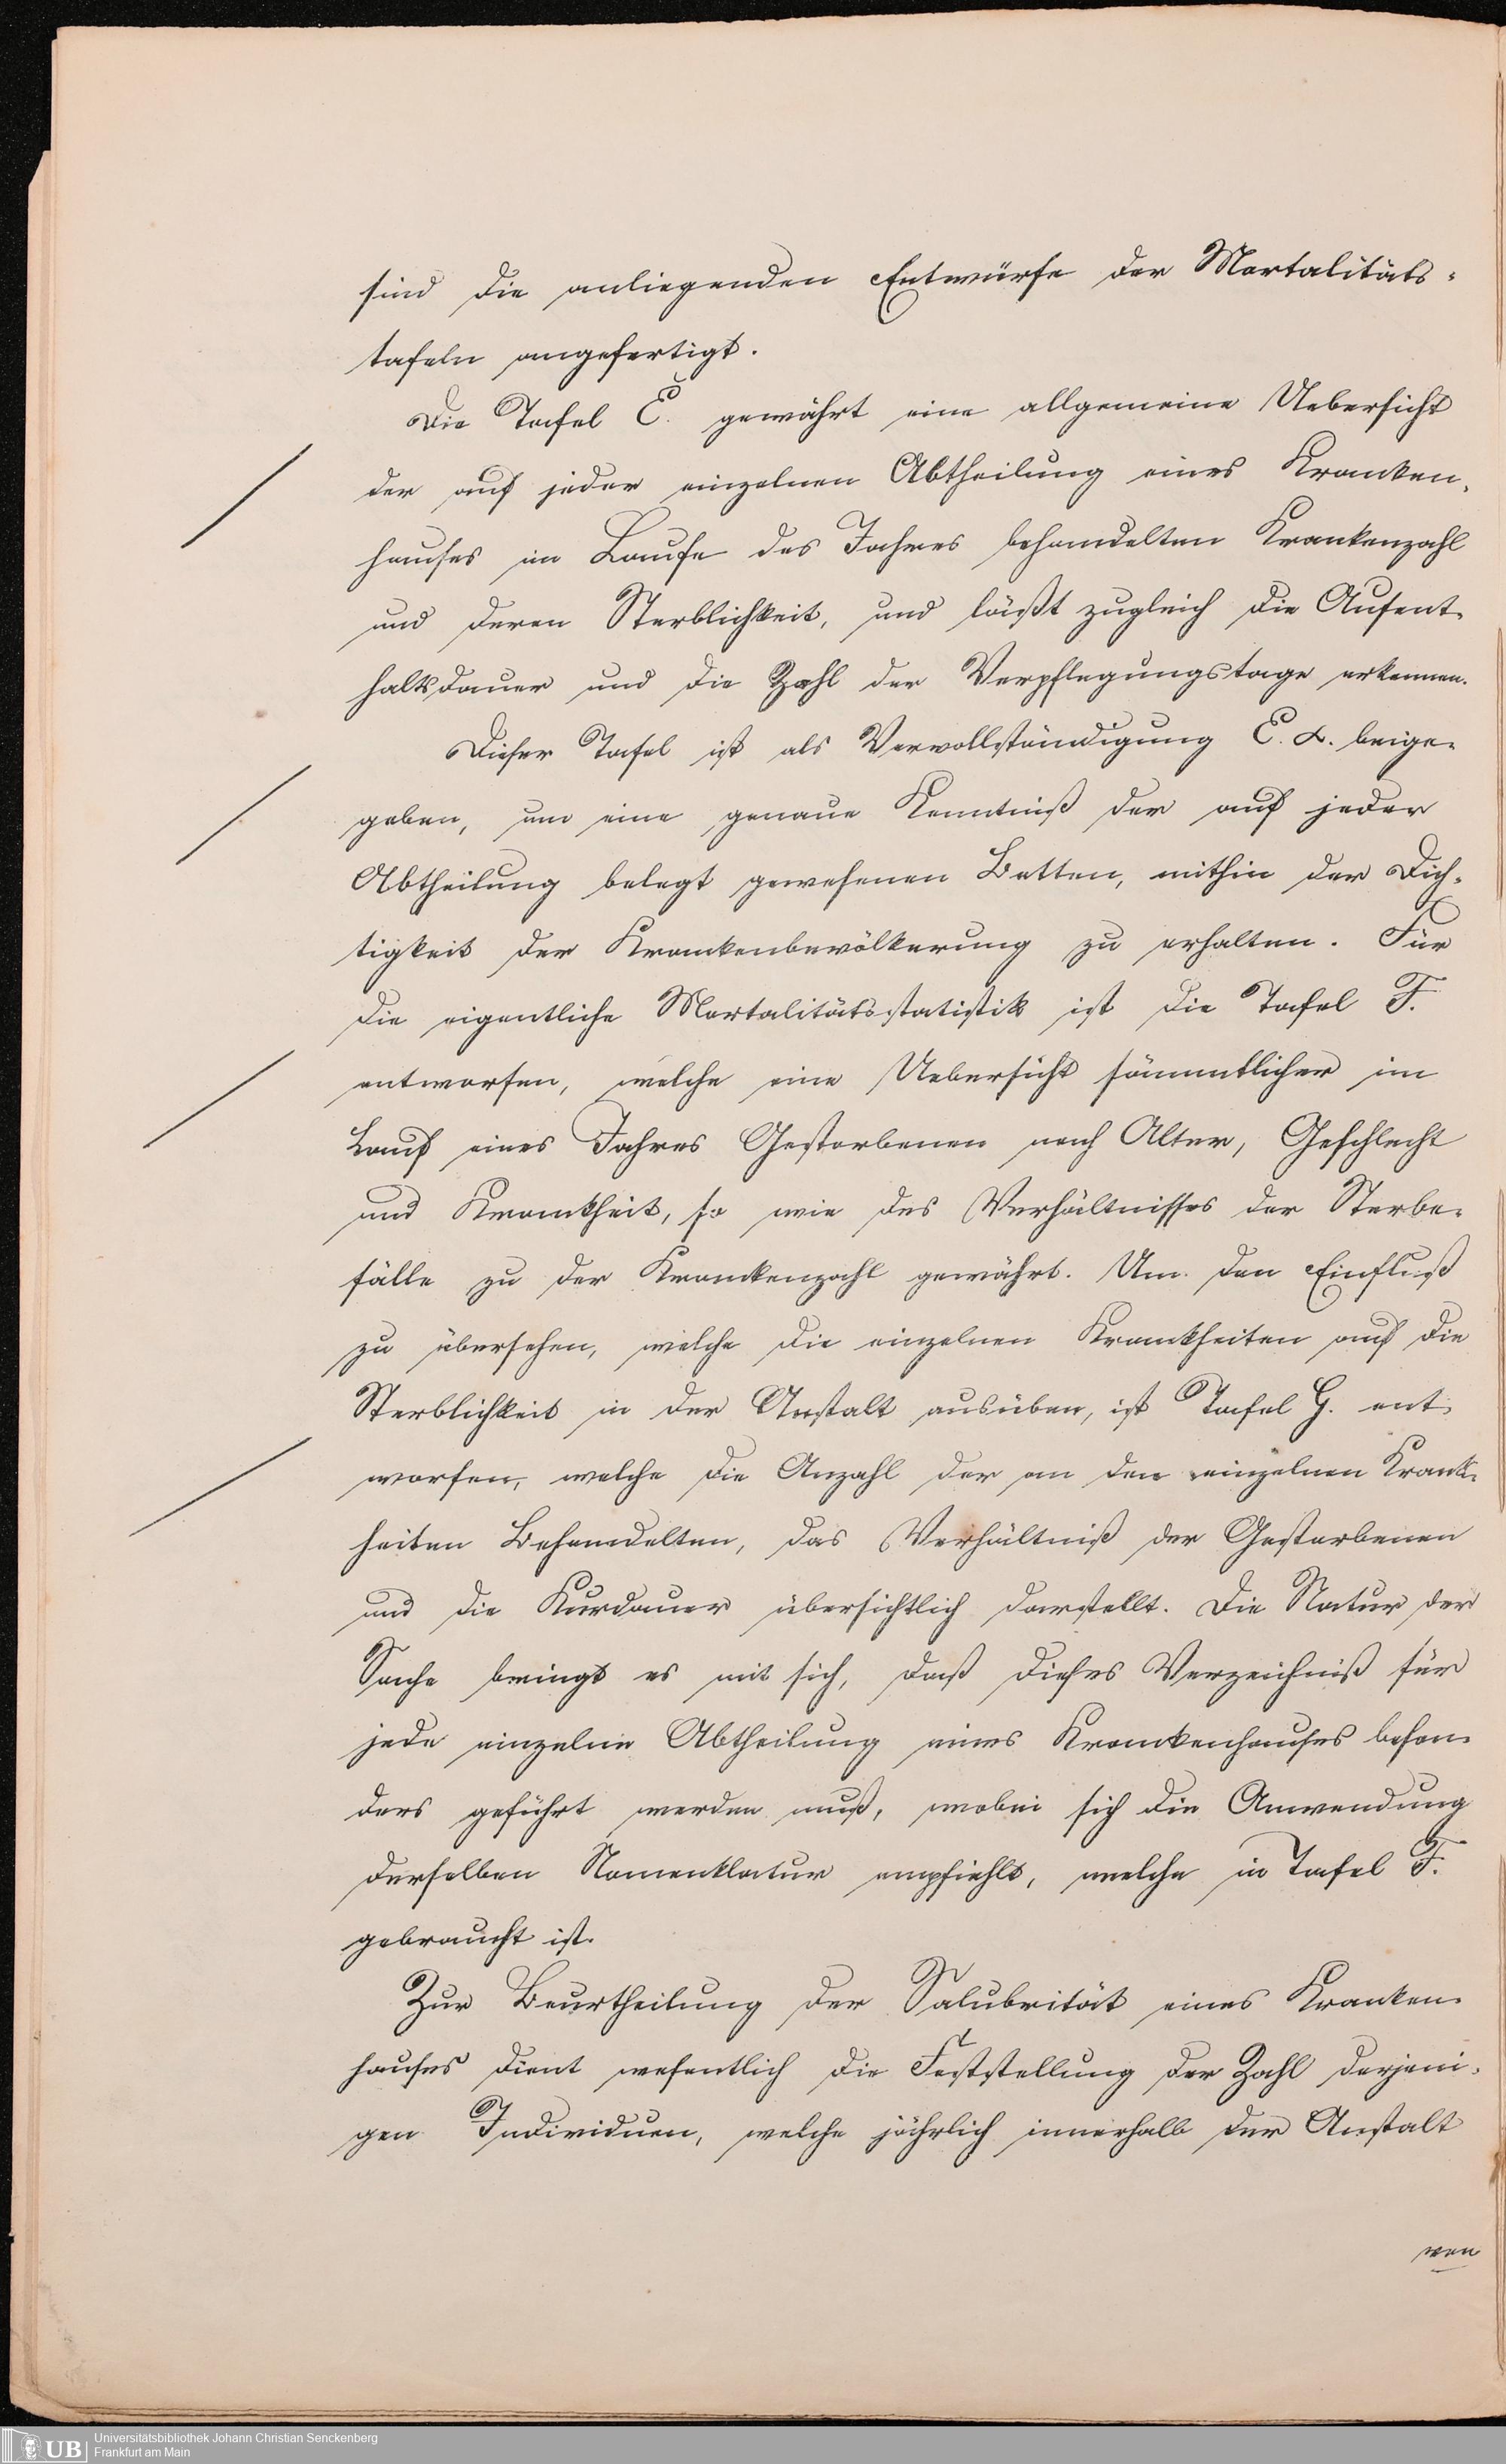 sind die anliegenden Entwürfe der Mortalitäts-
tafeln angefertigt.
Die Tafel E. gewährt eine allgemeine Uebersicht
der auf jeder einzelnen Abtheilung eines Kranken-
hauses im Laufe des Jahres behandelten Krankenzahl
und deren Sterblichkeit, und läßt zugleich die Aufent-
haltsdauer und die Zahl der Verpflegungstage erkennen.
Dieser Tafel ist als Vervollständigung E. α. beige-
geben, um eine genaue Kenntniß der auf jeder
Abtheilung belegt gewesenen Betten, mithin der Dich-
tigkeit der Krankenbevölkerung zu erhalten. Für
die eigentliche Mortalitätsstatistik ist die Tafel F.
entworfen, welche eine Uebersicht sämmtlicher im
Lauf eines Jahres Gestorbenen nach Alter, Geschlecht
und Krankheit, so wie des Verhältnisses der Sterbe-
fälle zu der Krankenzahl gewährt. Um den Einfluß
zu übersehen, welche die einzelnen Krankheiten auf die
Sterblichkeit in der Anstalt ausüben, ist Tafel G. ent-
worfen, welche die Anzahl der an den einzelnen Krank-
heiten Behandelten, das Verhältniß der Gestorbenen
und die Kurdauer übersichtlich darstellt. Die Natur der
Sache bringt es mit sich, daß dieses Verzeichniß für
jede einzelne Abtheilung eines Krankenhauses beson-
ders geführt werden muß, wobei sich die Anwendung
derselben Nomenklatur empfiehlt, welche in Tafel F.
gebraucht ist.
Zur Beurtheilung der Salubrität eines Kranken-
hauses dient wesentlich die Feststellung der Zahl derjeni-
gen Individuen, welche jährlich innerhalb der Anstalt
von
UB Universitätsbibliothek Johann Christian Senckenberg
Frankfurt am Main